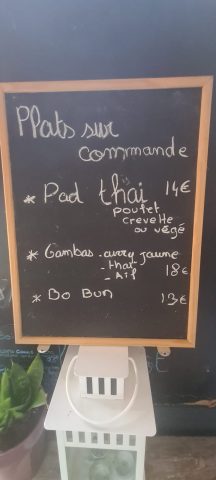 Plats sur
commande
* Pad thai 14€
poulet
crevette
ou végé
* Gambas - curry jaune
- thaï
- Ail 18€
* Bo Bun 13€